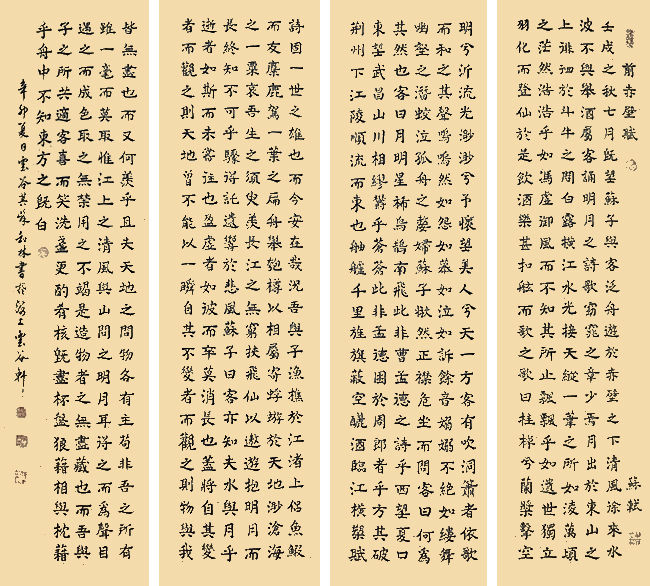 前赤壁賦 蘇軾
壬戌之秋七月既望蘇子與客泛舟遊於赤壁之下清風徐來水
波不興舉酒屬客誦明月之詩歌窈窕之章少焉月出於東山之
上徘徊於斗牛之間白露橫江水光接天縱一葦之所如淩萬頃
之茫然浩浩乎如馮虛御風而不知其所止飄飄乎如遺世獨立
羽化而登仙於是飲酒樂甚扣舷而歌之歌曰桂棹兮蘭槳擊空
明兮泝流光渺渺兮予懷望美人兮天一方客有吹洞簫者依歌
而和之其聲嗚嗚然如怨如慕如泣如訴餘音嫋嫋不絕如縷舞
幽壑之潛蛟泣孤舟之嫠婦蘇子愀然正襟危坐而問客曰何為
其然也客曰月明星稀烏鵲南飛此非曹孟德之詩乎西望夏口
東望武昌山川相繆鬱乎蒼蒼此非孟德困於周郎者乎方其破
荊州下江陵順流而東也舳艫千里旌旗蔽空釃酒臨江橫槊賦
詩固一世之雄也而今安在哉況吾與子漁樵於江渚上侶魚鰕
而友麋鹿駕一葉之扁舟舉匏樽以相屬寄蜉蝣於天地渺滄海
之一粟哀吾生之須臾羨長江之無窮挾飛仙以遨遊抱明月而
長終知不可乎驟得託遺響於悲風蘇子曰客亦知夫水與月乎
逝者如斯而未嘗往也盈虛者如彼而卒莫消長也蓋將自其變
者而觀之則天地曾不能以一瞬自其不變者而觀之則物與我
皆無盡也而又何羨乎且夫天地之間物各有主苟非吾之所有
雖一毫而莫取惟江上之清風與山間之明月耳得之而為聲目
遇之而成色取之無禁用之不竭是造物者之無盡藏也而吾與
子之所共適客喜而笑洗盞更酌肴核既盡杯盤狼藉相與枕藉
乎舟中不知東方之既白
辛卯夏日雲谷 水書於 上雲谷軒